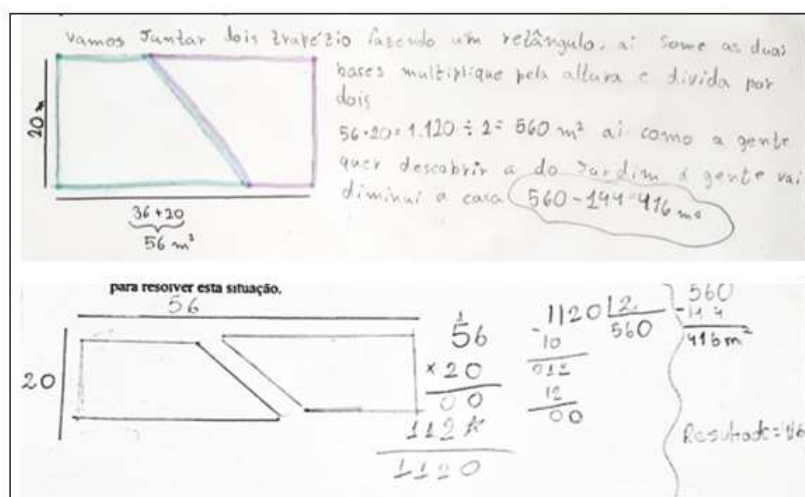 vamos Juntar dois trapézio fazendo um retângulo, ai some as duas
bases multiplique pela altura e divida por
dois
56·20=1.120÷2= 560 m² ai como a gente
quer descobrir a do Jardim a gente vai
diminui a casa 560-144=416 m²
20 m
36+20
56 m²
para resolver esta situação.
56
20
56
×20
00
1120
1120 2
-10 560
012
12
00
560
-144
416 m²